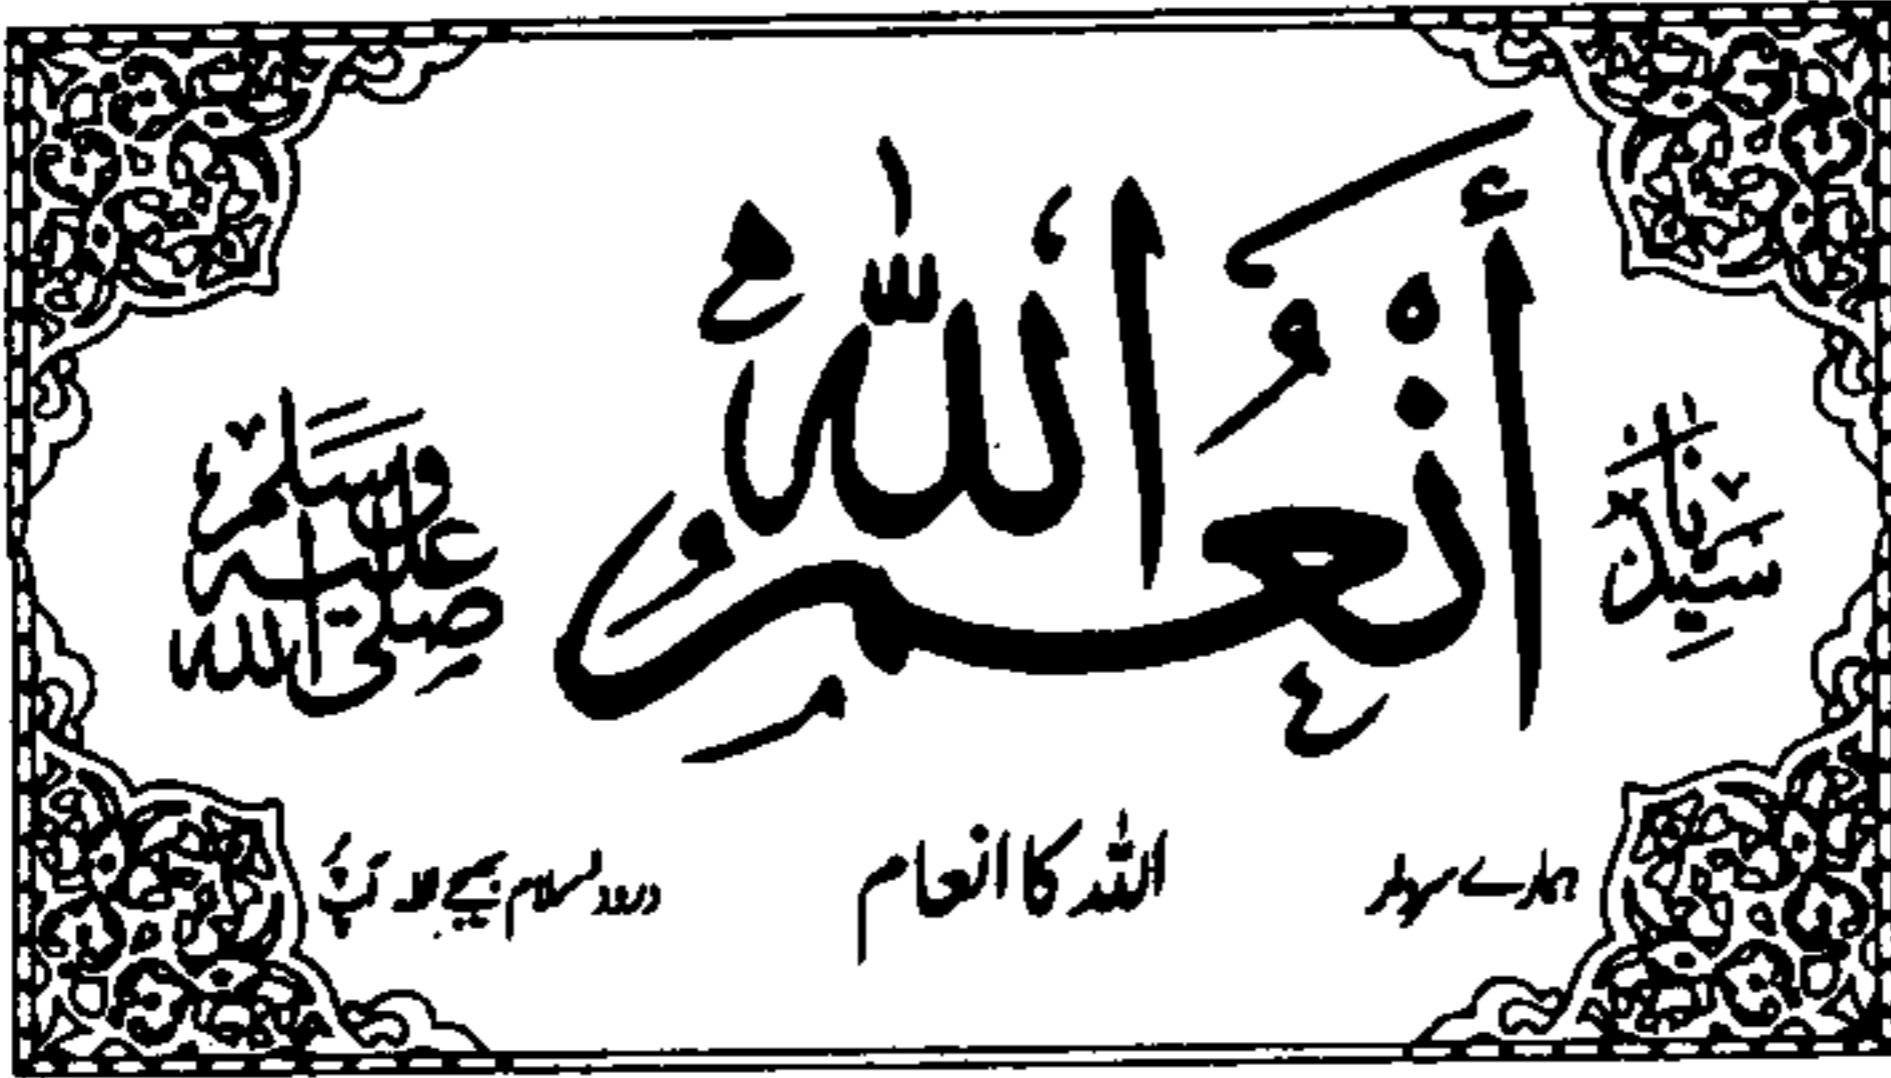 سيدنا أَنْعُمُ اللّٰه صلى الله عليه وسلم
ہمارے سردار اللہ کا انعام درود سلام بھیجے اللہ آپ پر